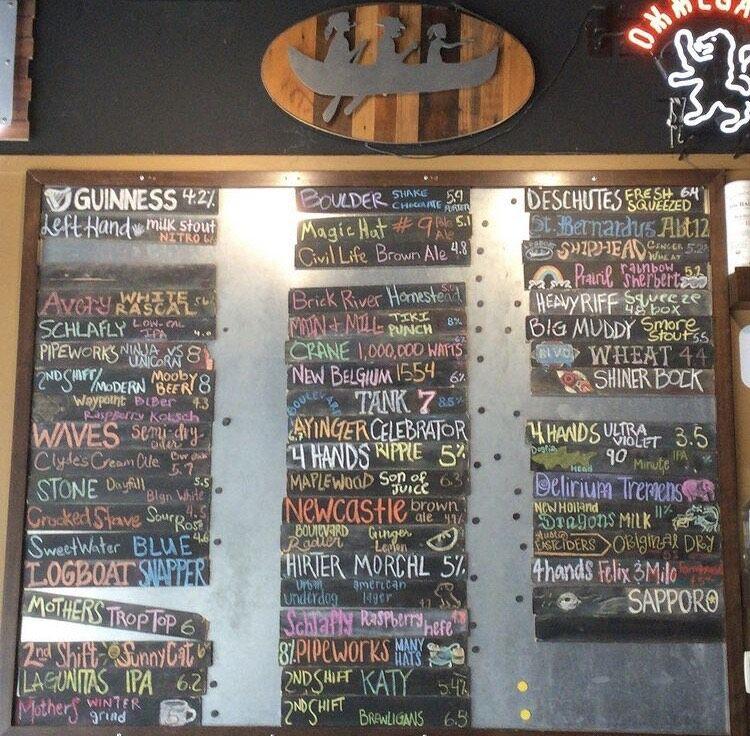 OMMEGA
GUINNESS 4.2%
Left Hand milk stout
NITRO 6
Avery WHITE RASCAL 5.6
SCHLAFLY LOW-CAL IPA 4.0
PIPEWORKS NINJA VS UNICORN 8
2ND SHIFT/MODERN MOOBY BEER! 8
Waypoint BiBer 4.3
Raspberry Kolsch
WAVES Semi-dry cider
Clydes Cream Ale 5.7
STONE Dayfall 5.5
Blgn White
Crooked Stave Sour Rosé 4.5
SWEETWATER BLUE 4.6
LOGBOAT SNAPPER
MOTHERS TROPTOP 6
2nd Shift SunnyCat 6
LAGUNITAS IPA 6.2
Mothers WINTER grind
BOULDER SHAKE CHOCOLATE PORTER 5.9
Magic Hat #9 5.1
Civil Life Brown Ale 4.8
Brick River Homestead
MAIN & MILL TIKI PUNCH 8%
CRANE 1,000,000 WATTS
NEW BELGIUM 1554 6%
BOULEVARD TANK 7 8.5%
AYINGER CELEBRATOR
4 HANDS RIPPLE 5%
MAPLEWOOD Son of JUICE 6.3
Newcastle brown ale 4.7%
BOULEVARD Radler Ginger Lemon
HIRTER MORCHL 5%
urban underdog american lager
Schlafly Raspberry hefe
8% PIPEWORKS MANY HATS
2ND SHIFT KATY 5.4%
2ND SHIFT BRAWLIGANS 6.5
DESCHUTES FRESH SQUEEZED 6.4
St. Bernardus Abt 12
SHIPHEAD GINGER WHEAT
Prairie rainbow sherbert 5.2
HEAVY RIFF Squeeze box 4.8
BIG MUDDY Smore Stout 5.5
CIVIL WHEAT 4.4
SHINER BOCK
4 HANDS ULTRA VIOLET 3.5
Dogfish Head 90 Minute IPA
Delirium Tremens
NEW HOLLAND Dragons MILK 11%
AUSTIN EASTCIDERS ORIGINAL DRY
4 hands Felix 3 Milo
SAPPORO